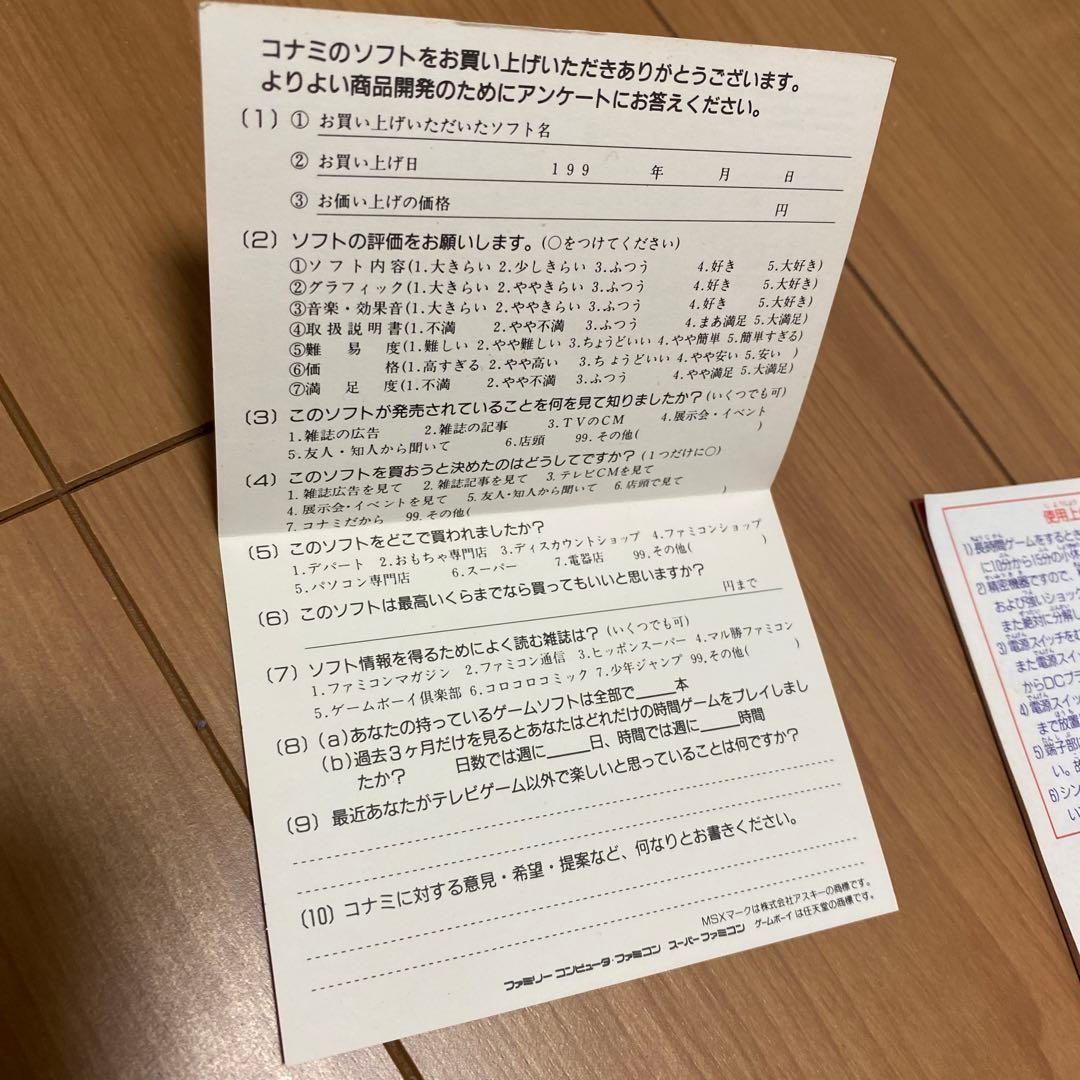 コナミのソフトをお買い上げいただきありがとうございます。
よりよい商品開発のためにアンケートにお答えください。
(1) ① お買い上げいただいたソフト名
② お買い上げ日 199 年 月 日
③ お価い上げの価格 円
(2) ソフトの評価をお願いします。(○をつけてください)
①ソフト内容(1.大きらい 2.少しきらい 3.ふつう 4.好き 5.大好き)
②グラフィック(1.大きらい 2.ややきらい 3.ふつう 4.好き 5.大好き)
③音楽・効果音(1.大きらい 2.ややきらい 3.ふつう 4.好き 5.大好き)
④取扱説明書(1.不満 2.やや不満 3.ふつう 4.まあ満足 5.大満足)
⑤難易度(1.難しい 2.やや難しい 3.ちょうどいい 4.やや簡単 5.簡単すぎる)
⑥価格(1.高すぎる 2.やや高い 3.ちょうどいい 4.やや安い 5.安い )
⑦満足度(1.不満 2.やや不満 3.ふつう 4.やや満足 5.大満足)
(3) このソフトが発売されていることを何を見て知りましたか?(いくつでも可)
1.雑誌の広告 2.雑誌の記事 3.TVのCM 4.展示会・イベント
5.友人・知人から聞いて 6.店頭 99.その他( )
(4) このソフトを買おうと決めたのはどうしてですか?(1つだけに○)
1.雑誌広告を見て 2.雑誌記事を見て 3.テレビCMを見て
4.展示会・イベントを見て 5.友人・知人から聞いて 6.店頭で見て
7.コナミだから 99.その他( )
(5) このソフトをどこで買われましたか?
1.デパート 2.おもちゃ専門店 3.ディスカウントショップ 4.ファミコンショップ
5.パソコン専門店 6.スーパー 7.電器店 99.その他( )
(6) このソフトは最高いくらまでなら買ってもいいと思いますか?
円まで
(7) ソフト情報を得るためによく読む雑誌は?(いくつでも可)
1.ファミコンマガジン 2.ファミコン通信 3.ヒッポンスーパー 4.マル勝ファミコン
5.ゲームボーイ倶楽部 6.コロコロコミック 7.少年ジャンプ 99.その他( )
(8) (a)あなたの持っているゲームソフトは全部で____本
(b)過去3ヶ月だけを見るとあなたはどれだけの時間ゲームをプレイしまし
たか? 日数では週に____日、時間では週に____時間
(9) 最近あなたがテレビゲーム以外で楽しいと思っていることは何ですか?
(10) コナミに対する意見・希望・提案など、何なりとお書きください。
MSXマークは株式会社アスキーの商標です。
ファミリーコンピュータ・ファミコン スーパーファミコン ゲームボーイは任天堂の商標です。
使用上
1)長時間ゲームをするとき
に10分から15分の小休
2)精密機器ですので、
および強いショック
また絶対に分解し
3)電源スイッチをむ
また電源スイッ
からDCプラ
4)電源スイッ
まで放置
5)端子部に
い。故
6)シン
い